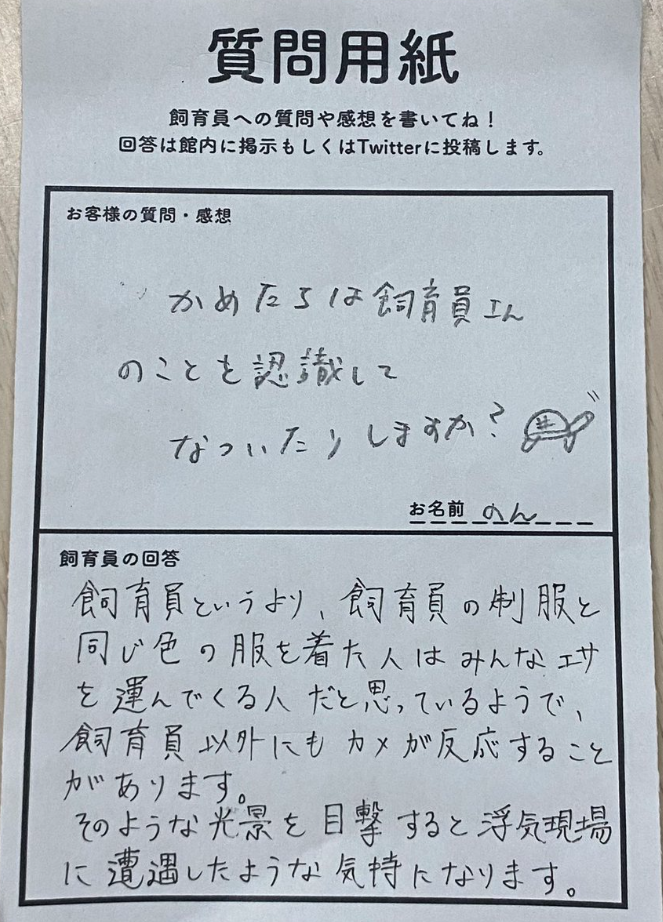 質問用紙
飼育員への質問や感想を書いてね！
回答は館内に掲示もしくはTwitterに投稿します。
お客様の質問・感想
かめたろは飼育員さん
のことを認識して
なついたりしますか？
お名前 のん
飼育員の回答
飼育員というより、飼育員の制服と
同じ色の服を着た人はみんなエサ
を運んでくる人だと思っているようで、
飼育員以外にもカメが反応すること
があります。
そのような光景を目撃すると浮気現場
に遭遇したような気持になります。